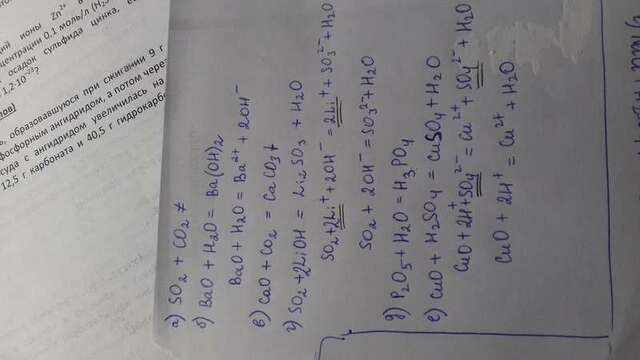 ионы Zn²⁺ в
центрации 0,1 моль/л (H
осадок сульфида цинка,
1,2·10⁻²³?
, образовавшуюся при сжигании 9 г
фосфорным ангидридом, а потом через
суда с ангидридом увеличилась на
12,5 г карбоната и 40,5 г гидрокарб
а) SO₂ + CO₂ ≠
б) BaO + H₂O = Ba(OH)₂
BaO + H₂O = Ba²⁺ + 2OH⁻
в) CaO + CO₂ = CaCO₃↓
г) SO₂ + 2LiOH = Li₂SO₃ + H₂O
SO₂ + 2Li⁺ + 2OH⁻ = 2Li⁺ + SO₃²⁻ + H₂O
SO₂ + 2OH⁻ = SO₃²⁻ + H₂O
д) P₂O₅ + H₂O = H₃PO₄
е) CuO + H₂SO₄ = CuSO₄ + H₂O
CuO + 2H⁺ + SO₄²⁻ = Cu²⁺ + SO₄²⁻ + H₂O
CuO + 2H⁺ = Cu²⁺ + H₂O